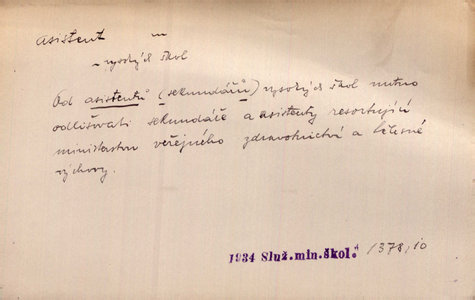 asistent —
~ vysokých škol
Od asistentů (sekundářů) vysokých škol nutno
odlišovati sekundáře a asistenty resortující
ministerstvu veřejného zdravotnictví a tělesné
výchovy.
1934 Služ.min.škol. 1378,10